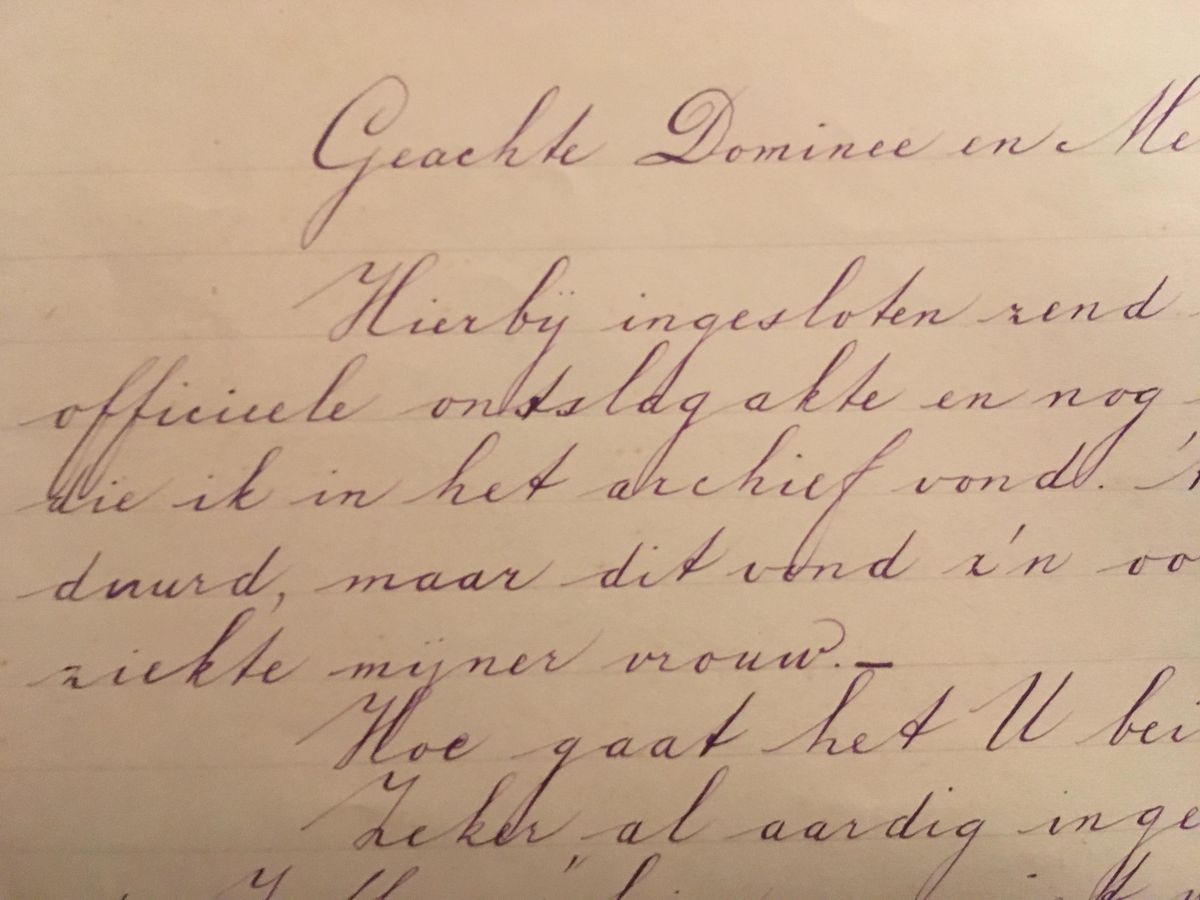 Geachte Dominee en Me
Hierbij ingesloten zend
officieele ontslag akte en nog
die ik in het archief vond. 't
duurd, maar dit vond z'n oo
ziekte mijner vrouw. —
Hoe gaat het U bei
Zeker al aardig inge